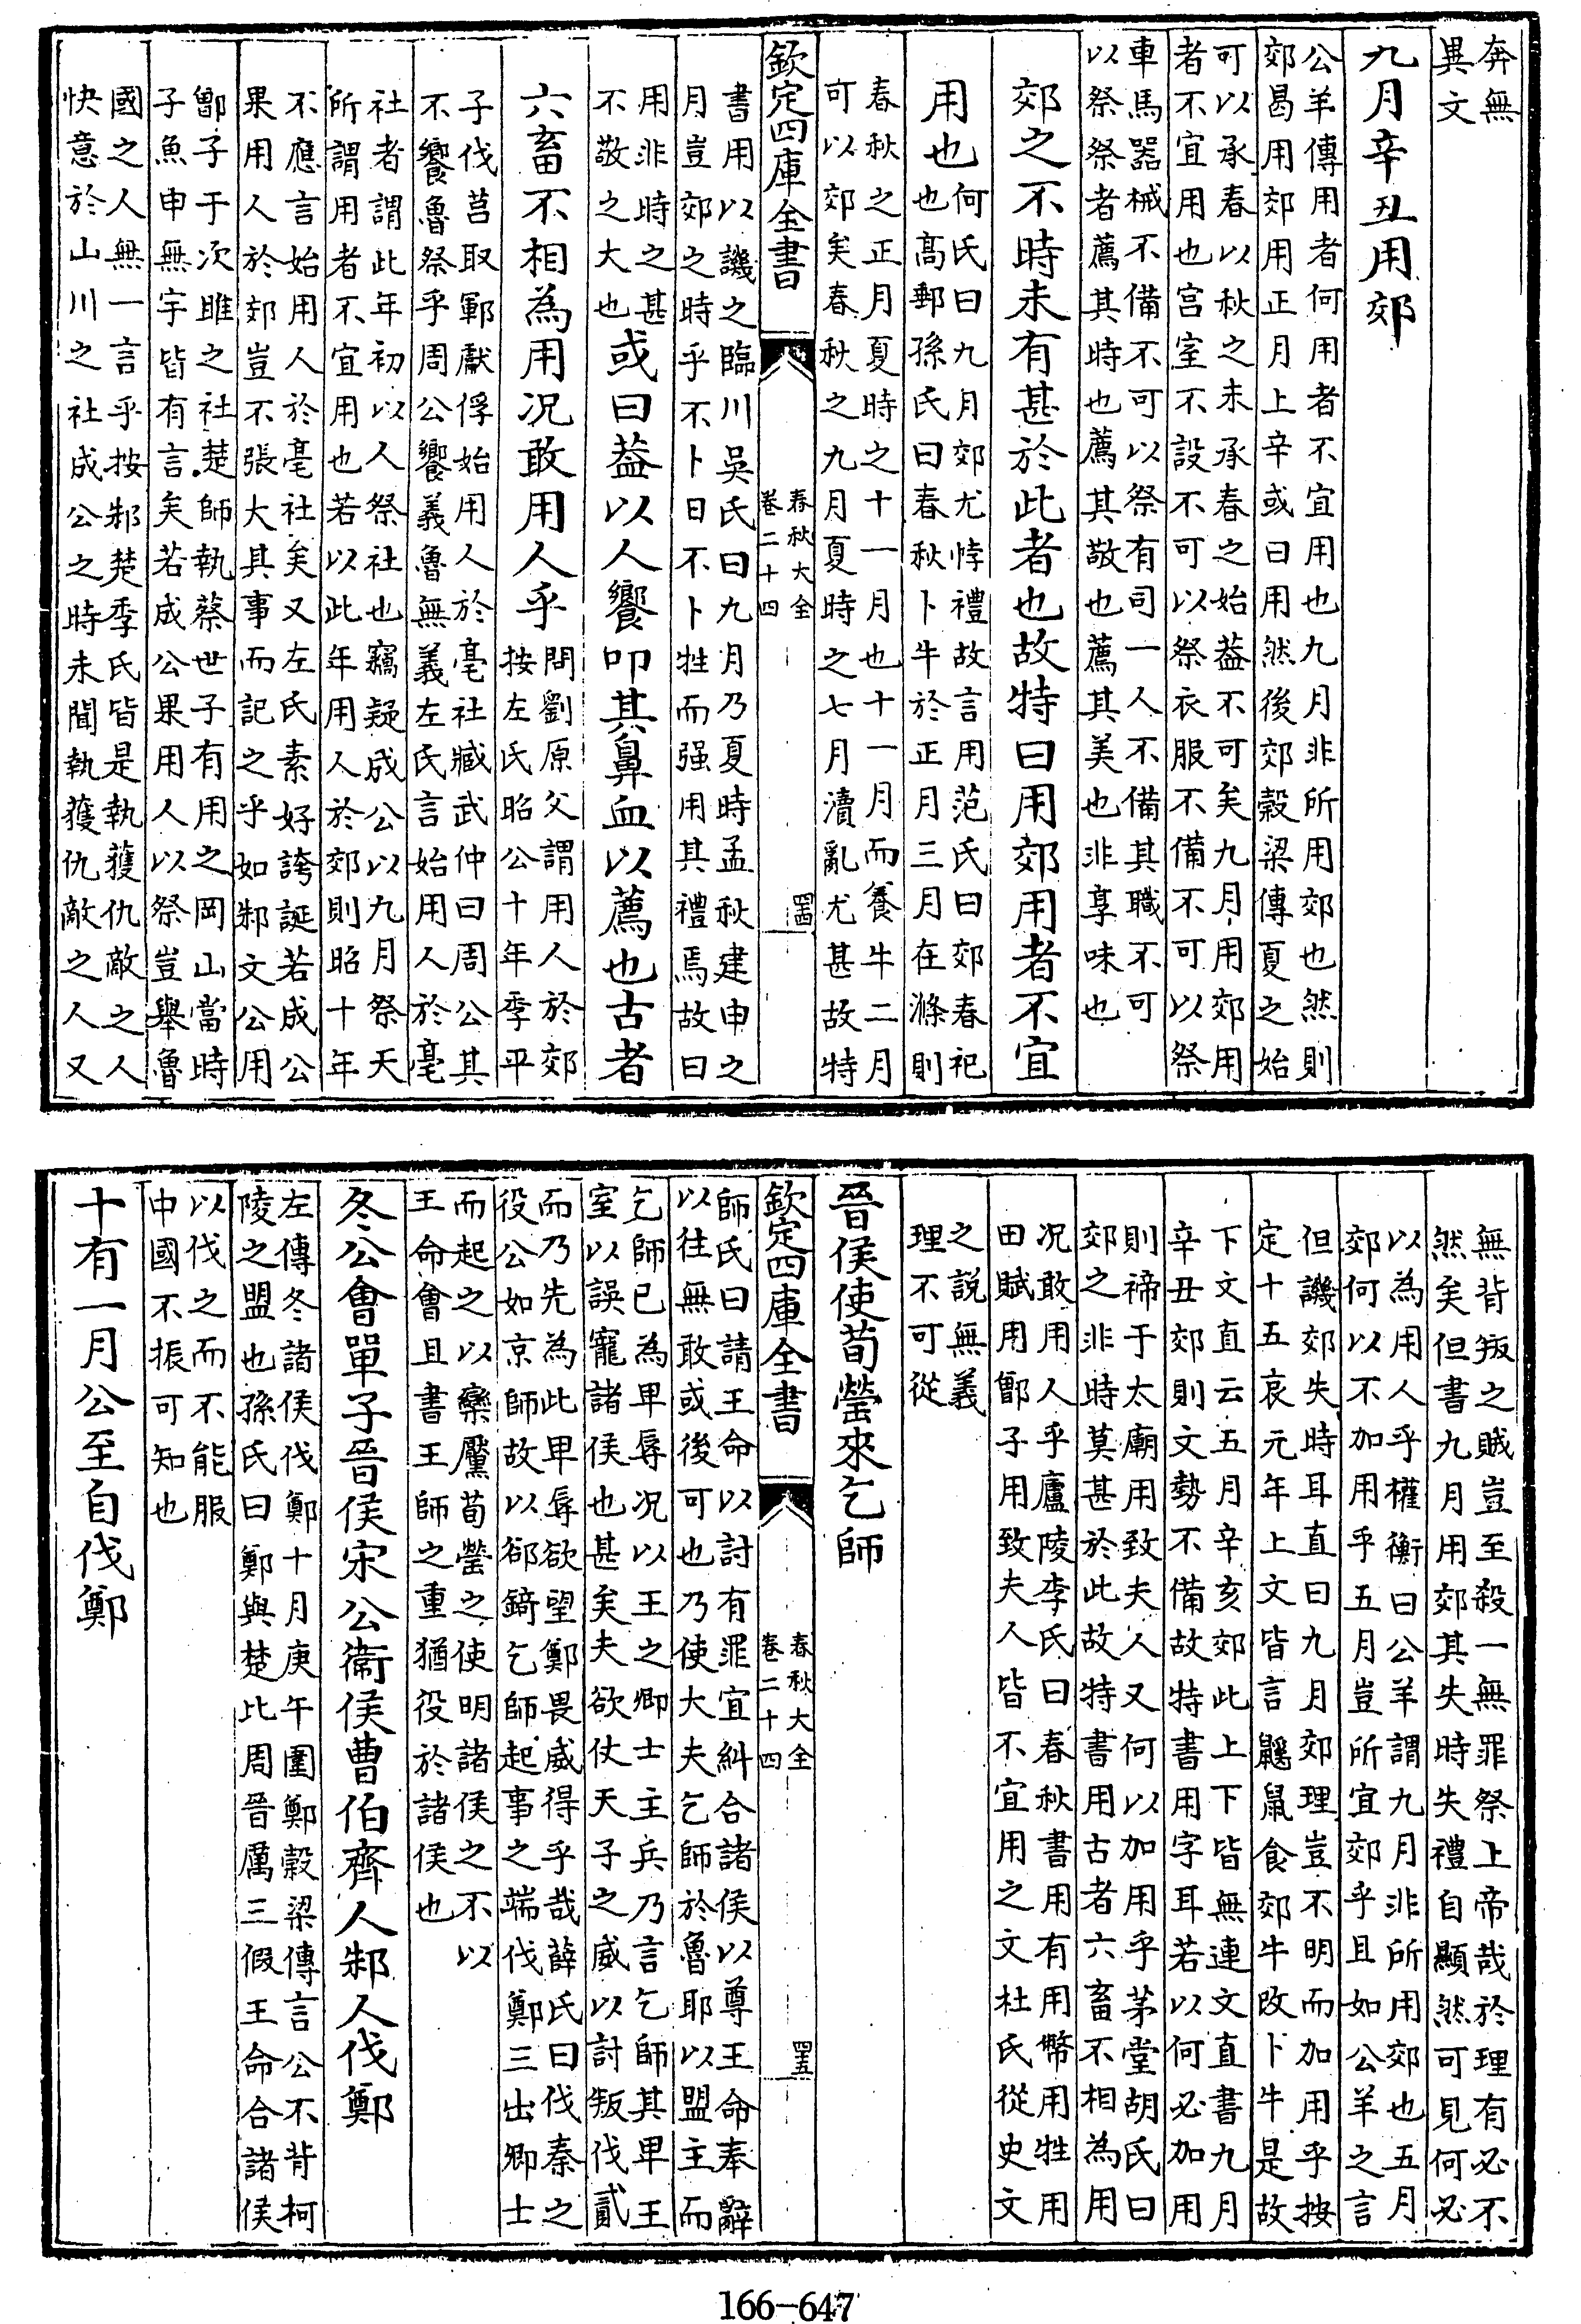 奔無
異文
九月辛丑用郊
公羊傳用者何用者不宜用也九月非所用郊也然則
郊曷用郊用正月上辛或曰用然後郊穀梁傳夏之始
可以承春以秋之末承春之始葢不可矣九月用郊用
者不宜用也宫室不設不可以祭衣服不備不可以祭
車馬器械不備不可以祭有司一人不備其職不可
以祭祭者薦其時也薦其敬也薦其美也非享味也
郊之不時未有甚於此者也故特曰用郊用者不宜
用也
何氏曰九月郊尤悖禮故言用范氏曰郊春祀
也髙郵孫氏曰春秋卜牛於正月三月在滌則
春秋之正月夏時之十一月也十一月而養牛二月
可以郊矣春秋之九月夏時之七月瀆亂尤甚故特
欽定四庫全書
春秋大全
卷二十四
四十四
書用以譏之臨川吳氏曰九月乃夏時孟秋建申之
月豈郊之時乎不卜日不卜牲而强用其禮焉故曰
用非時之甚
不敬之大也
或曰葢以人饗叩其鼻血以薦也古者
六畜不相為用况敢用人乎
問劉原父謂用人於郊
按左氏昭公十年季平
子伐莒取鄆獻俘始用人於亳社臧武仲曰周公其
不饗魯祭乎周公饗義魯無義左氏言始用人於亳
社者謂此年初以人祭社也竊疑成公以九月祭天
所謂用者不宜用也若以此年用人於郊則昭十年
不應言始用人於亳社矣又左氏素好誇誕若成公
果用人於郊豈不張大其事而記之乎如邾文公用
鄫子于次雎之社楚師執蔡世子有用之岡山當時
子魚申無宇皆有言矣若成公果用人以祭豈舉魯
國之人無一言乎按邾楚季氏皆是執獲仇敵之人
快意於山川之社成公之時未聞執獲仇敵之人又
無背叛之賊豈至殺一無罪祭上帝哉於理有必不
然矣但書九月用郊其失時失禮自顯然可見何必
以為用人乎權衡曰公羊謂九月非所用郊也五月
郊何以不加用乎五月豈所宜郊乎且如公羊之言
但譏郊失時耳直曰九月郊理豈不明而加用乎按
定十五哀元年上文皆言鼷鼠食郊牛改卜牛是故
下文直云五月辛亥郊此上下皆無連文直書九月
辛丑郊則文勢不備故特書用字耳若以何必加用
則禘于太廟用致夫人又何以加用乎茅堂胡氏曰
郊之非時莫甚於此故特書用古者六畜不相為用
况敢用人乎廬陵李氏曰春秋書用有用幣用牲用
田賦用鄫子用致夫人皆不宜用之文杜氏從史文
之說無義
理不可從
晉侯使荀罃來乞師
欽定四庫全書
春秋大全
卷二十四
四十五
師氏曰請王命以討有罪宜糾合諸侯以尊王命奉辭
以往無敢或後可也乃使大夫乞師於魯耶以盟主而
乞師已為卑辱况以王之卿士主兵乃言乞師其卑王
室以誤寵諸侯也甚矣夫欲仗天子之威以討叛伐貳
而乃先為此卑辱欲望鄭畏威得乎哉薛氏曰伐秦之
役公如京師故以郤錡乞師起事之端伐鄭三出卿士
而起之以欒黶荀罃之使明諸侯之不以
王命會且書王師之重猶役於諸侯也
冬公會單子晉侯宋公衞侯曹伯齊人邾人伐鄭
左傳冬諸侯伐鄭十月庚午圍鄭穀梁傳言公不背柯
陵之盟也孫氏曰鄭與楚比周晉厲三假王命合諸侯
以伐之而不能服
中國不振可知也
十有一月公至自伐鄭
166-647